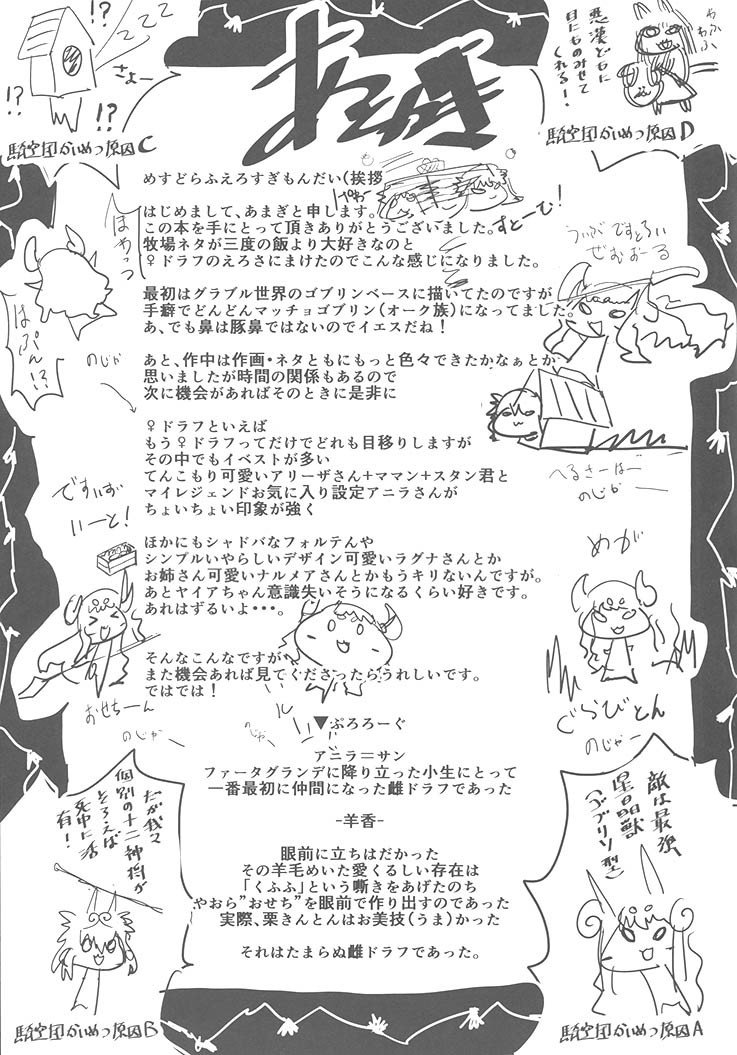 あとがき
めすどらふえろすぎもんだい(挨拶
はじめまして、あまぎと申します。
この本を手にとって頂きありがとうございました。
牧場ネタが三度の飯より大好きなのと
♀ドラフのえろさにまけたのでこんな感じになりました。
最初はグラブル世界のゴブリンベースに描いてたのですが
手癖でどんどんマッチョゴブリン(オーク族)になってました。
あ、でも鼻は豚鼻ではないのでイエスだね！
あと、作中は作画・ネタともにもっと色々できたかなぁとか
思いましたが時間の関係もあるので
次に機会があればそのときに是非に
♀ドラフといえば
もう♀ドラフってだけでどれも目移りしますが
その中でもイベストが多い
てんこもり可愛いアリーザさん+ママン+スタン君と
マイレジェンドお気に入り設定アニラさんが
ちょいちょい印象が強く
ほかにもシャドバなフォルテんや
シンプルいやらしいデザイン可愛いラグナさんとか
お姉さん可愛いナルメアさんとかもうキリないんですが。
あとヤイアちゃん意識失いそうになるくらい好きです。
あれはずるいよ・・・。
そんなこんなですが
また機会あれば見てくださったらうれしいです。
ではでは！
▼ぷろろーぐ
アニラ＝サン
ファータグランデに降り立った小生にとって
一番最初に仲間になった雌ドラフであった
-羊香-
眼前に立ちはだかった
その羊毛めいた愛くるしい存在は
「くふふ」という嘶きをあげたのち
やおら”おせち”を眼前で作り出すのであった
実際、栗きんとんはお美技(うま)かった
それはたまらぬ雌ドラフであった。
!?
ZZZ
さよー
!?
!?
騎空団かいめつ原因C
悪漢どもに
目にものみせて
くれる！
騎空団かいめつ原因D
すとーむ！
ほぁっっ
はぷん!?
のじゃ
うぃがですとろい
ぜむおーる
へるさーばー
のじゃー
ですいず
いーと！
おせちーん
のじゃー
めが
ぐらびとん
のじゃー
のじゃー
だが我々
個別の十二神将が
そろえば
死中に活
有！
騎空団かいめつ原因B
敵は最強
星晶獣
(ゴブリン型)
騎空団かいめつ原因A